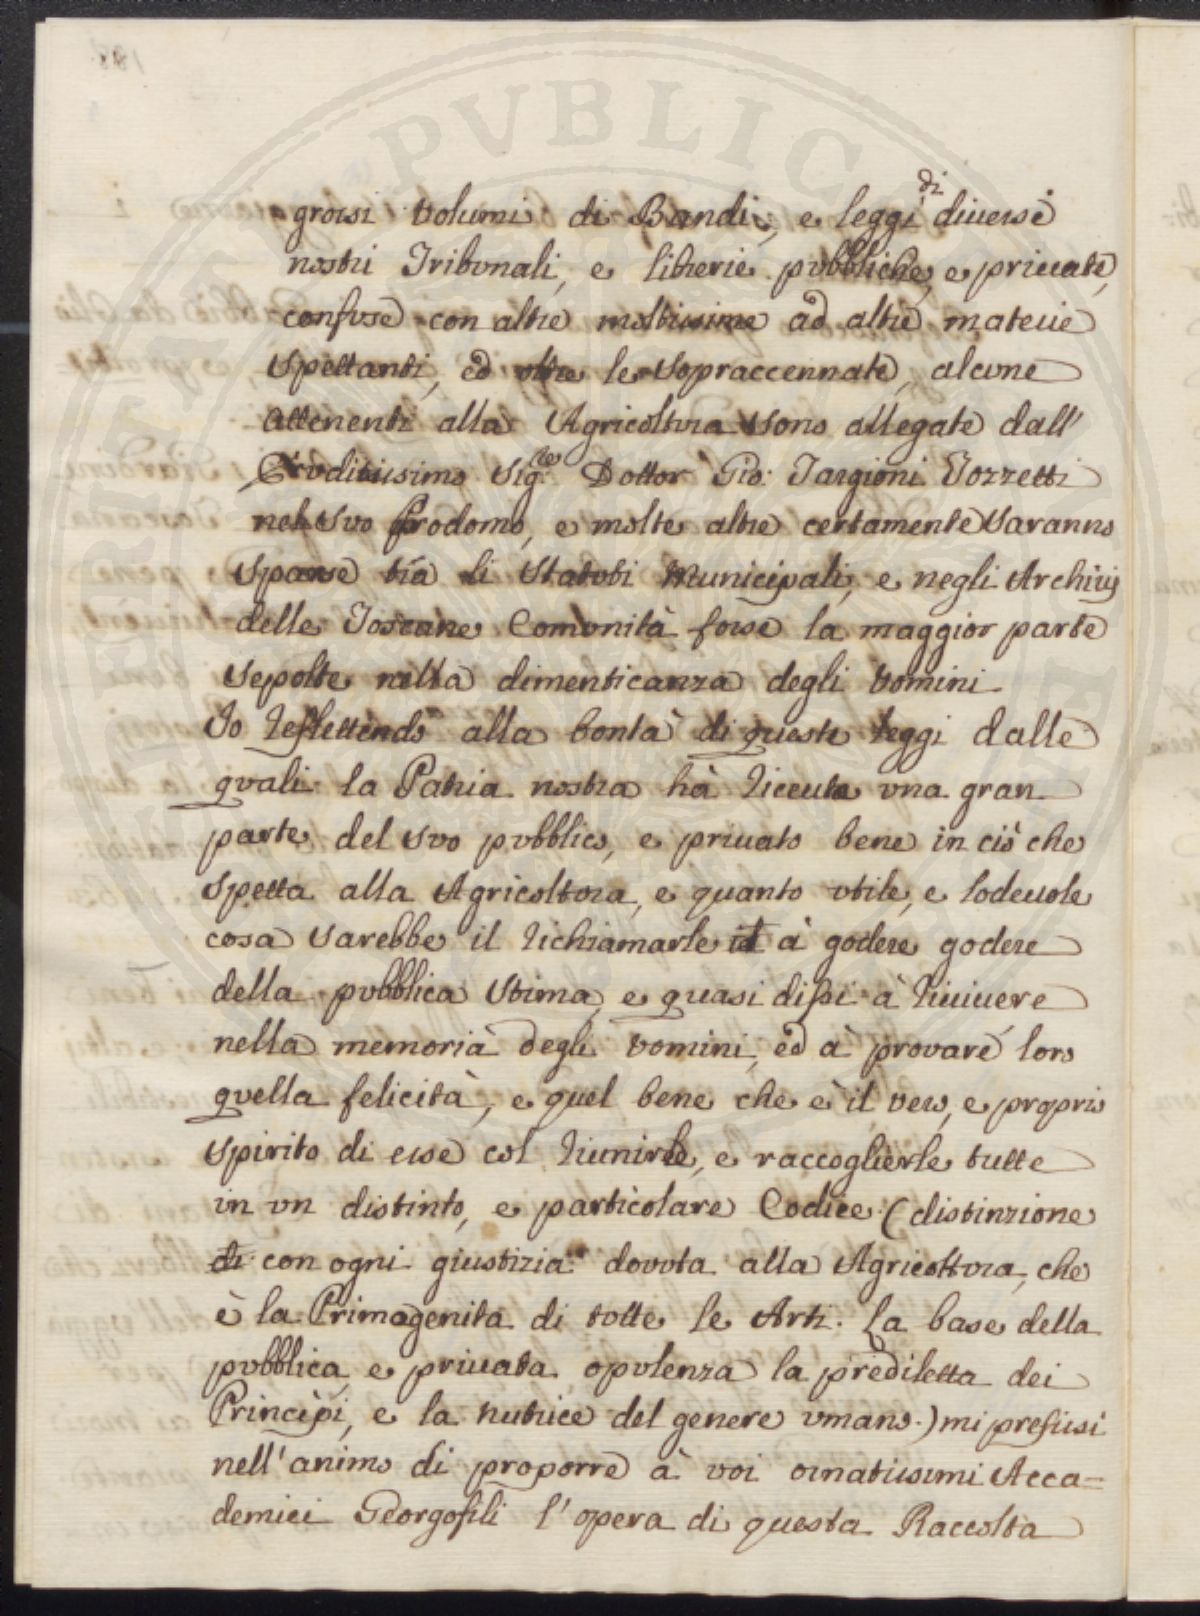 grossi volumi di Bandi, e leggi di diverse
nostri Tribunali, e librerie pubbliche, e private,
confuse con altre moltissime ad altre materie
spettanti, ed oltre le sopraccennate, alcune
attenenti alla Agricoltura sono allegate dall'
Eruditissimo Sig.re Dottor Gio: Targioni Tozzetti
nel suo Prodomo, e molte altre certamente saranno
sparse trà li Statuti Municipali, e negli Archivij
delle Toscane Comunità forse la maggior parte
sepolte nella dimenticanza degli vomini
Io reflettendo alla bontà di queste leggi dalle
quali la Patria nostra hà riceuta vna gran
parte del suo pubblico, e priuato bene in ciò che
spetta alla Agricoltura, e quanto vtile, e lodeuole
cosa sarebbe il richiamarle à godere godere
della pubblica stima, e quasi dissi à riuiuere
nella memoria degli vomini, ed à provare loro
quella felicità, e quel bene che è il vero, e proprio
spirito di esse col riunirle, e raccoglierle tutte
in vn distinto, e particolare Codice (distinzione
di con ogni giustizia dovuta alla Agricoltura, che
è la Primogenita di tutte le Arti. La base della
pubblica, e priuata opulenza la prediletta dei
Principi, e la nutrice del genere vmano.) mi prefissi
nell'animo di proporre à voi ornatissimi Acca=
demici Georgofili l'opera di questa Raccolta
PVBLICA